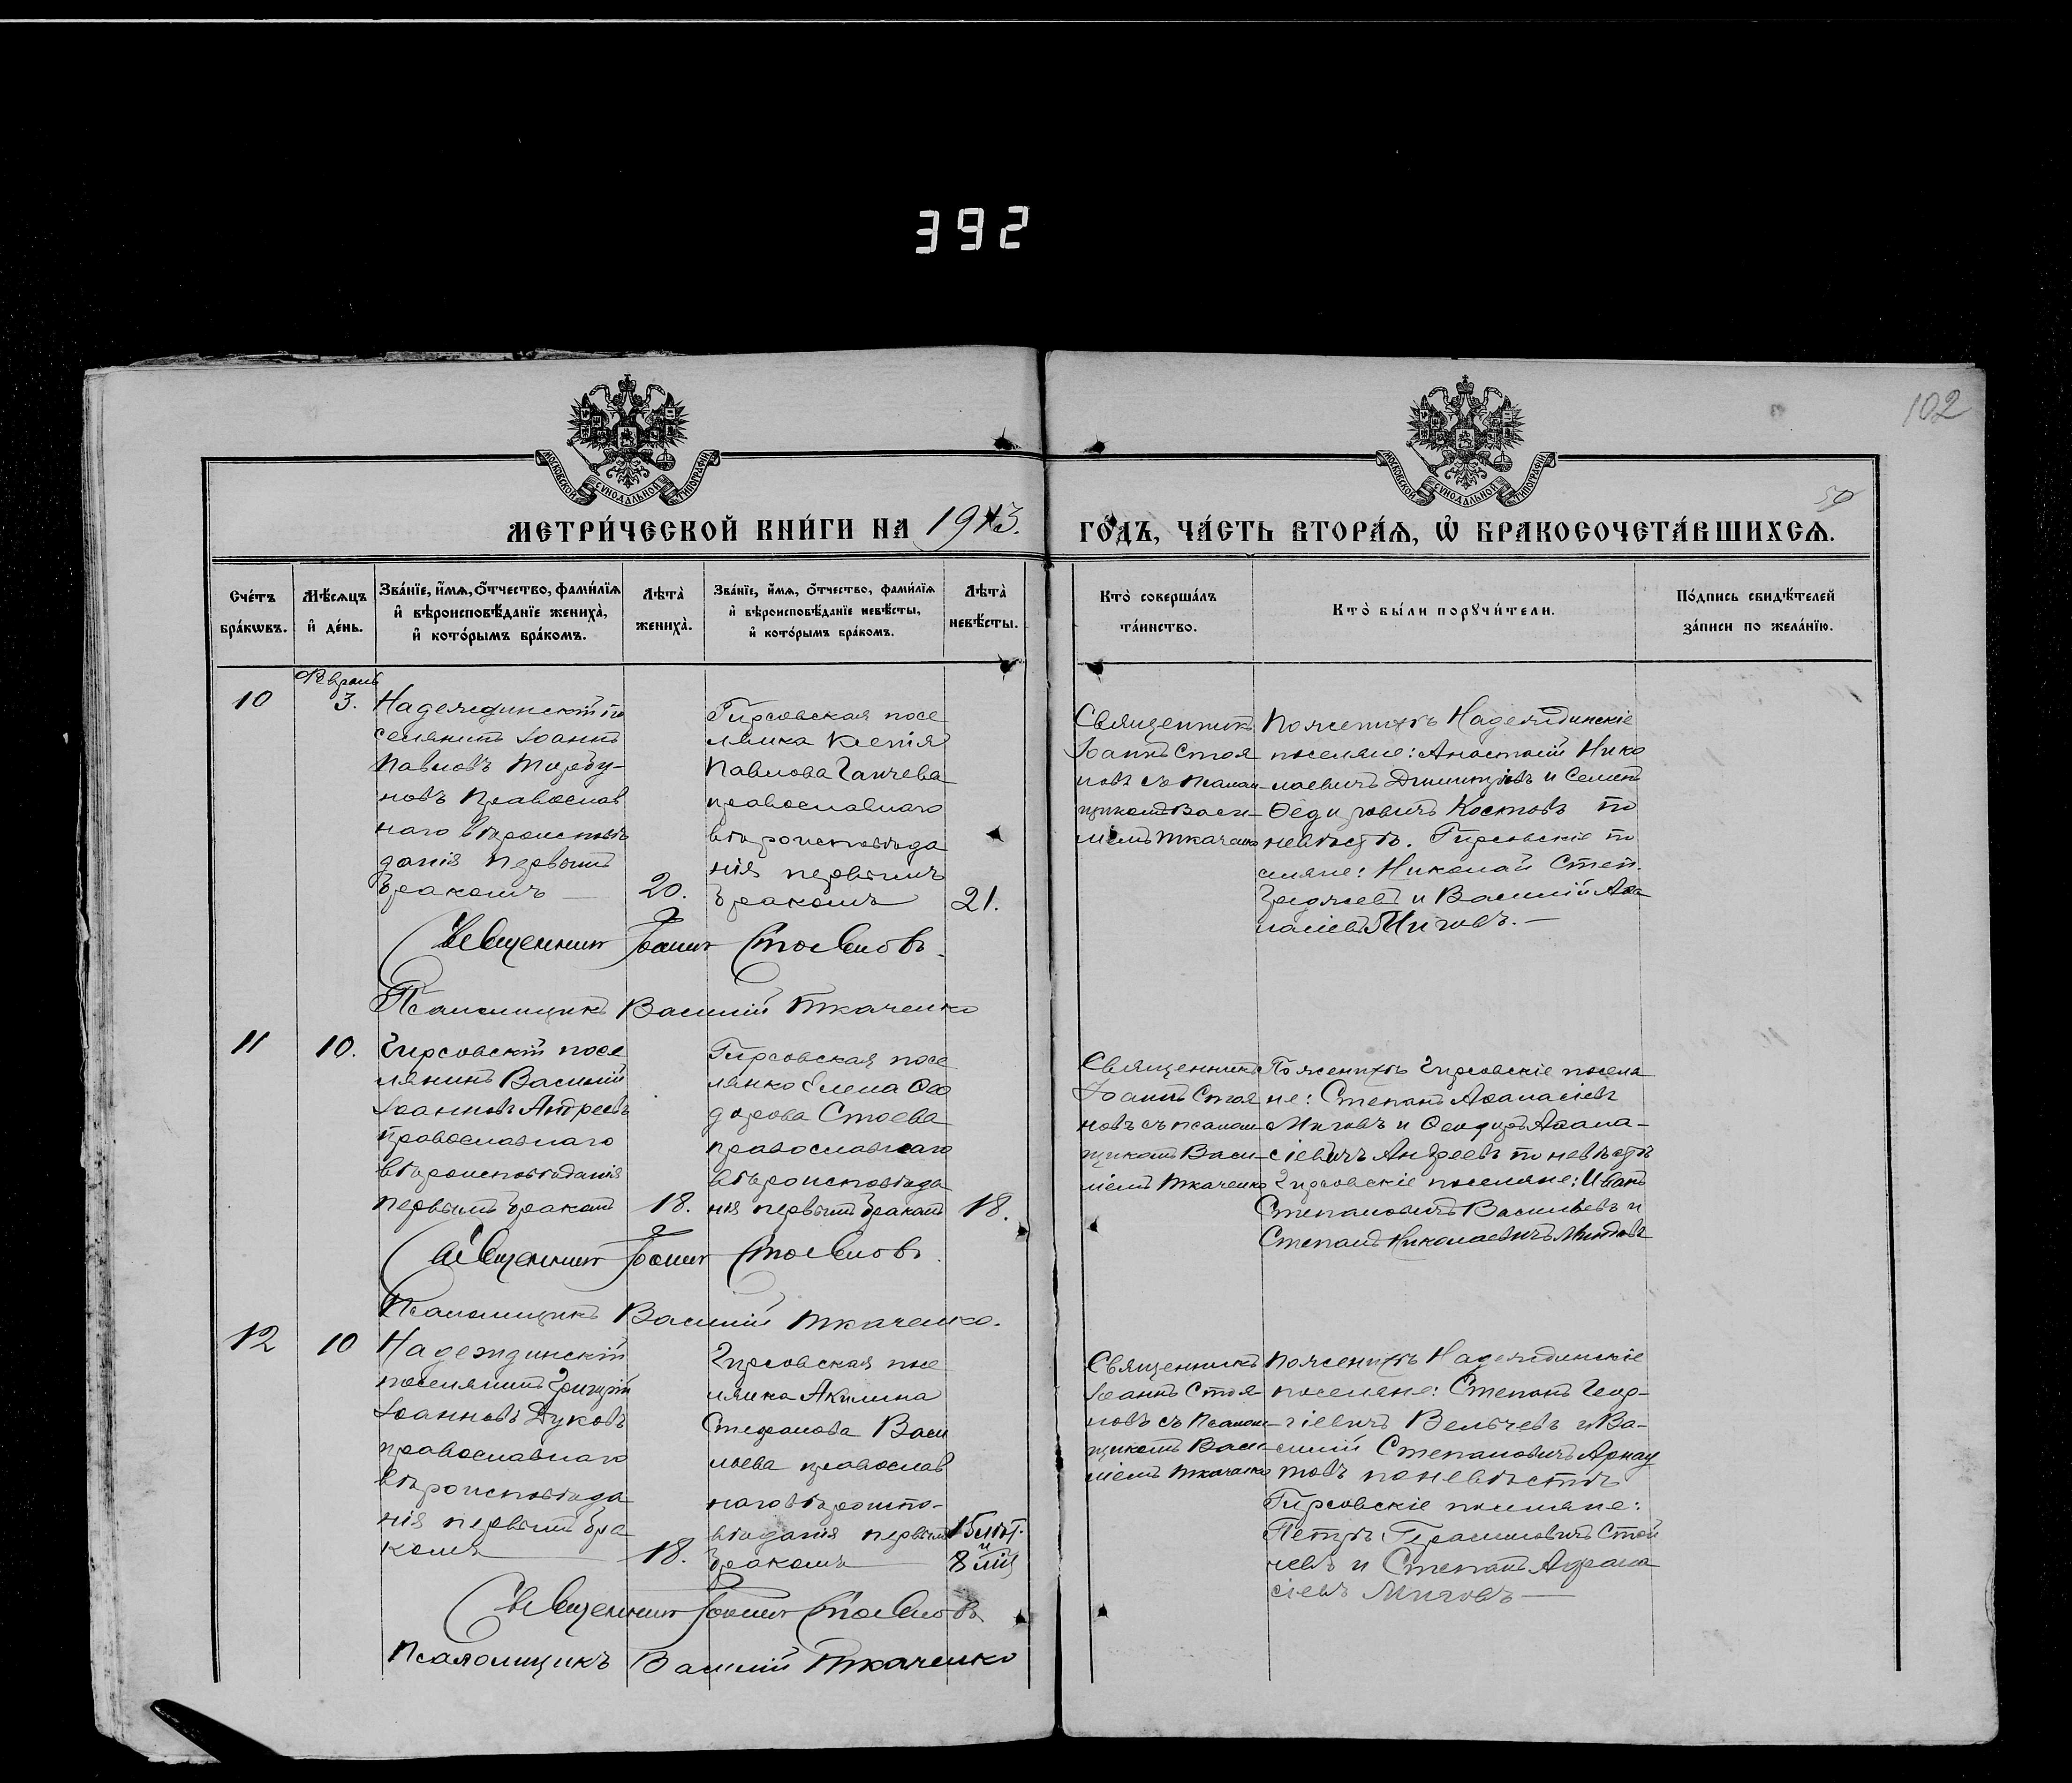 392
102
50
МОСКОВСКОЙ СѴНОДАЛЬНОЙ ТИПОГРАФІИ
МОСКОВСКОЙ СѴНОДАЛЬНОЙ ТИПОГРАФІИ
МЕТРИ́ЧЕСКОЙ КНИ́ГИ НА 1913. ГО́ДЪ, ЧА́СТЬ ВТОРА́Ѧ, Ѡ҆ БРАКОСОЧЕТА́ВШИХСѦ.
Сче́тъ бра́кѡвъ.
Мѣ́сѧцъ и҆ де́нь.
Зва́нїе, и҆́мѧ, ѻ҆́тчество, фами́лїѧ и҆ вѣроисповѣ́данїе жениха̀, и҆ кото́рымъ бра́комъ.
Лѣта̀ жениха̀.
Зва́нїе, и҆́мѧ, ѻ҆́тчество, фами́лїѧ и҆ вѣроисповѣ́данїе невѣ́сты, и҆ кото́рымъ бра́комъ.
Лѣта̀ невѣ́сты.
Кто̀ соверша́лъ та́инство.
Кто̀ бы́ли порꙋчи́тели.
По́дпись свидѣ́телей за́писи по жела́нїю.
10
Февраль
3.
Надеждинскій по
селянинъ Іоаннъ
Павловъ
новъ православ
наго вѣроисповѣ
данія первымъ
бракомъ
20.
Гирсовская посе
лянка Ксенія
Павлова Ганчева
православнаго
вѣроисповѣда
нія первымъ
бракомъ
21.
Священникъ
Іоаннъ Стоя
новъ съ псалом
щикомъ Васи-
ліемъ Ткаченко
По женихѣ Надеждинскіе
поселяне: Анастасій Нико
лаевичъ Димитровъ и Семенъ
Ѳедоровичъ Костовъ по
невѣстѣ. Гирсовскіе по
селяне: Николай Степ.
и Василій Аѳа
насіевъ Митовъ.
Священникъ Іоаннъ Стояновъ.
Псаломщикъ Василій Ткаченко
11
10.
Гирсовскій посе
лянинъ Василій
Іоанновъ Андреевъ
православнаго
вѣроисповѣданія
первымъ бракомъ
18.
Гирсовская посе
лянка Елена Ѳео
дорова Стоева
православнаго
вѣроисповѣда
нія первымъ бракомъ
18.
Священникъ
Іоаннъ Стоя
новъ съ псалом
щикомъ Васи-
ліемъ Ткаченко
По женихѣ Гирсовскіе поселя
не: Степанъ Аѳанасіевъ
Митовъ и Ѳеодоръ Аѳана-
сіевичъ Андреевъ по невѣстѣ
Гирсовскіе поселяне: Иванъ
Степановичъ Васильевъ и
Степанъ Николаевичъ Митовъ
Священникъ Іоаннъ Стояновъ.
Псаломщикъ Василій Ткаченко.
12
10
Надеждинскій
поселянинъ Григорій
Іоанновъ Дуковъ
православнаго
вѣроисповѣда
нія первымъ бра
комъ
18.
Гирсовская посе
лянка Акилина
Стефанова Васи
льева православ
наго вѣроиспо-
вѣданія первымъ
бракомъ
15 лѣт.
и
8 мѣс
Священникъ
Іоаннъ Стоя-
новъ съ псалом-
щикомъ Васи-
ліемъ Ткаченко
По женихѣ Надеждинскіе
поселяне: Степанъ Геор-
гіевичъ Вельчевъ и Ва-
силій Степановичъ Арнау
товъ по невѣстѣ
Гирсовскіе поселяне:
Петръ Герасимовичъ Стой
чевъ и Степанъ Афана
сіевъ Митовъ
Священникъ Іоаннъ Стояновъ
Псаломщикъ Василій Ткаченко